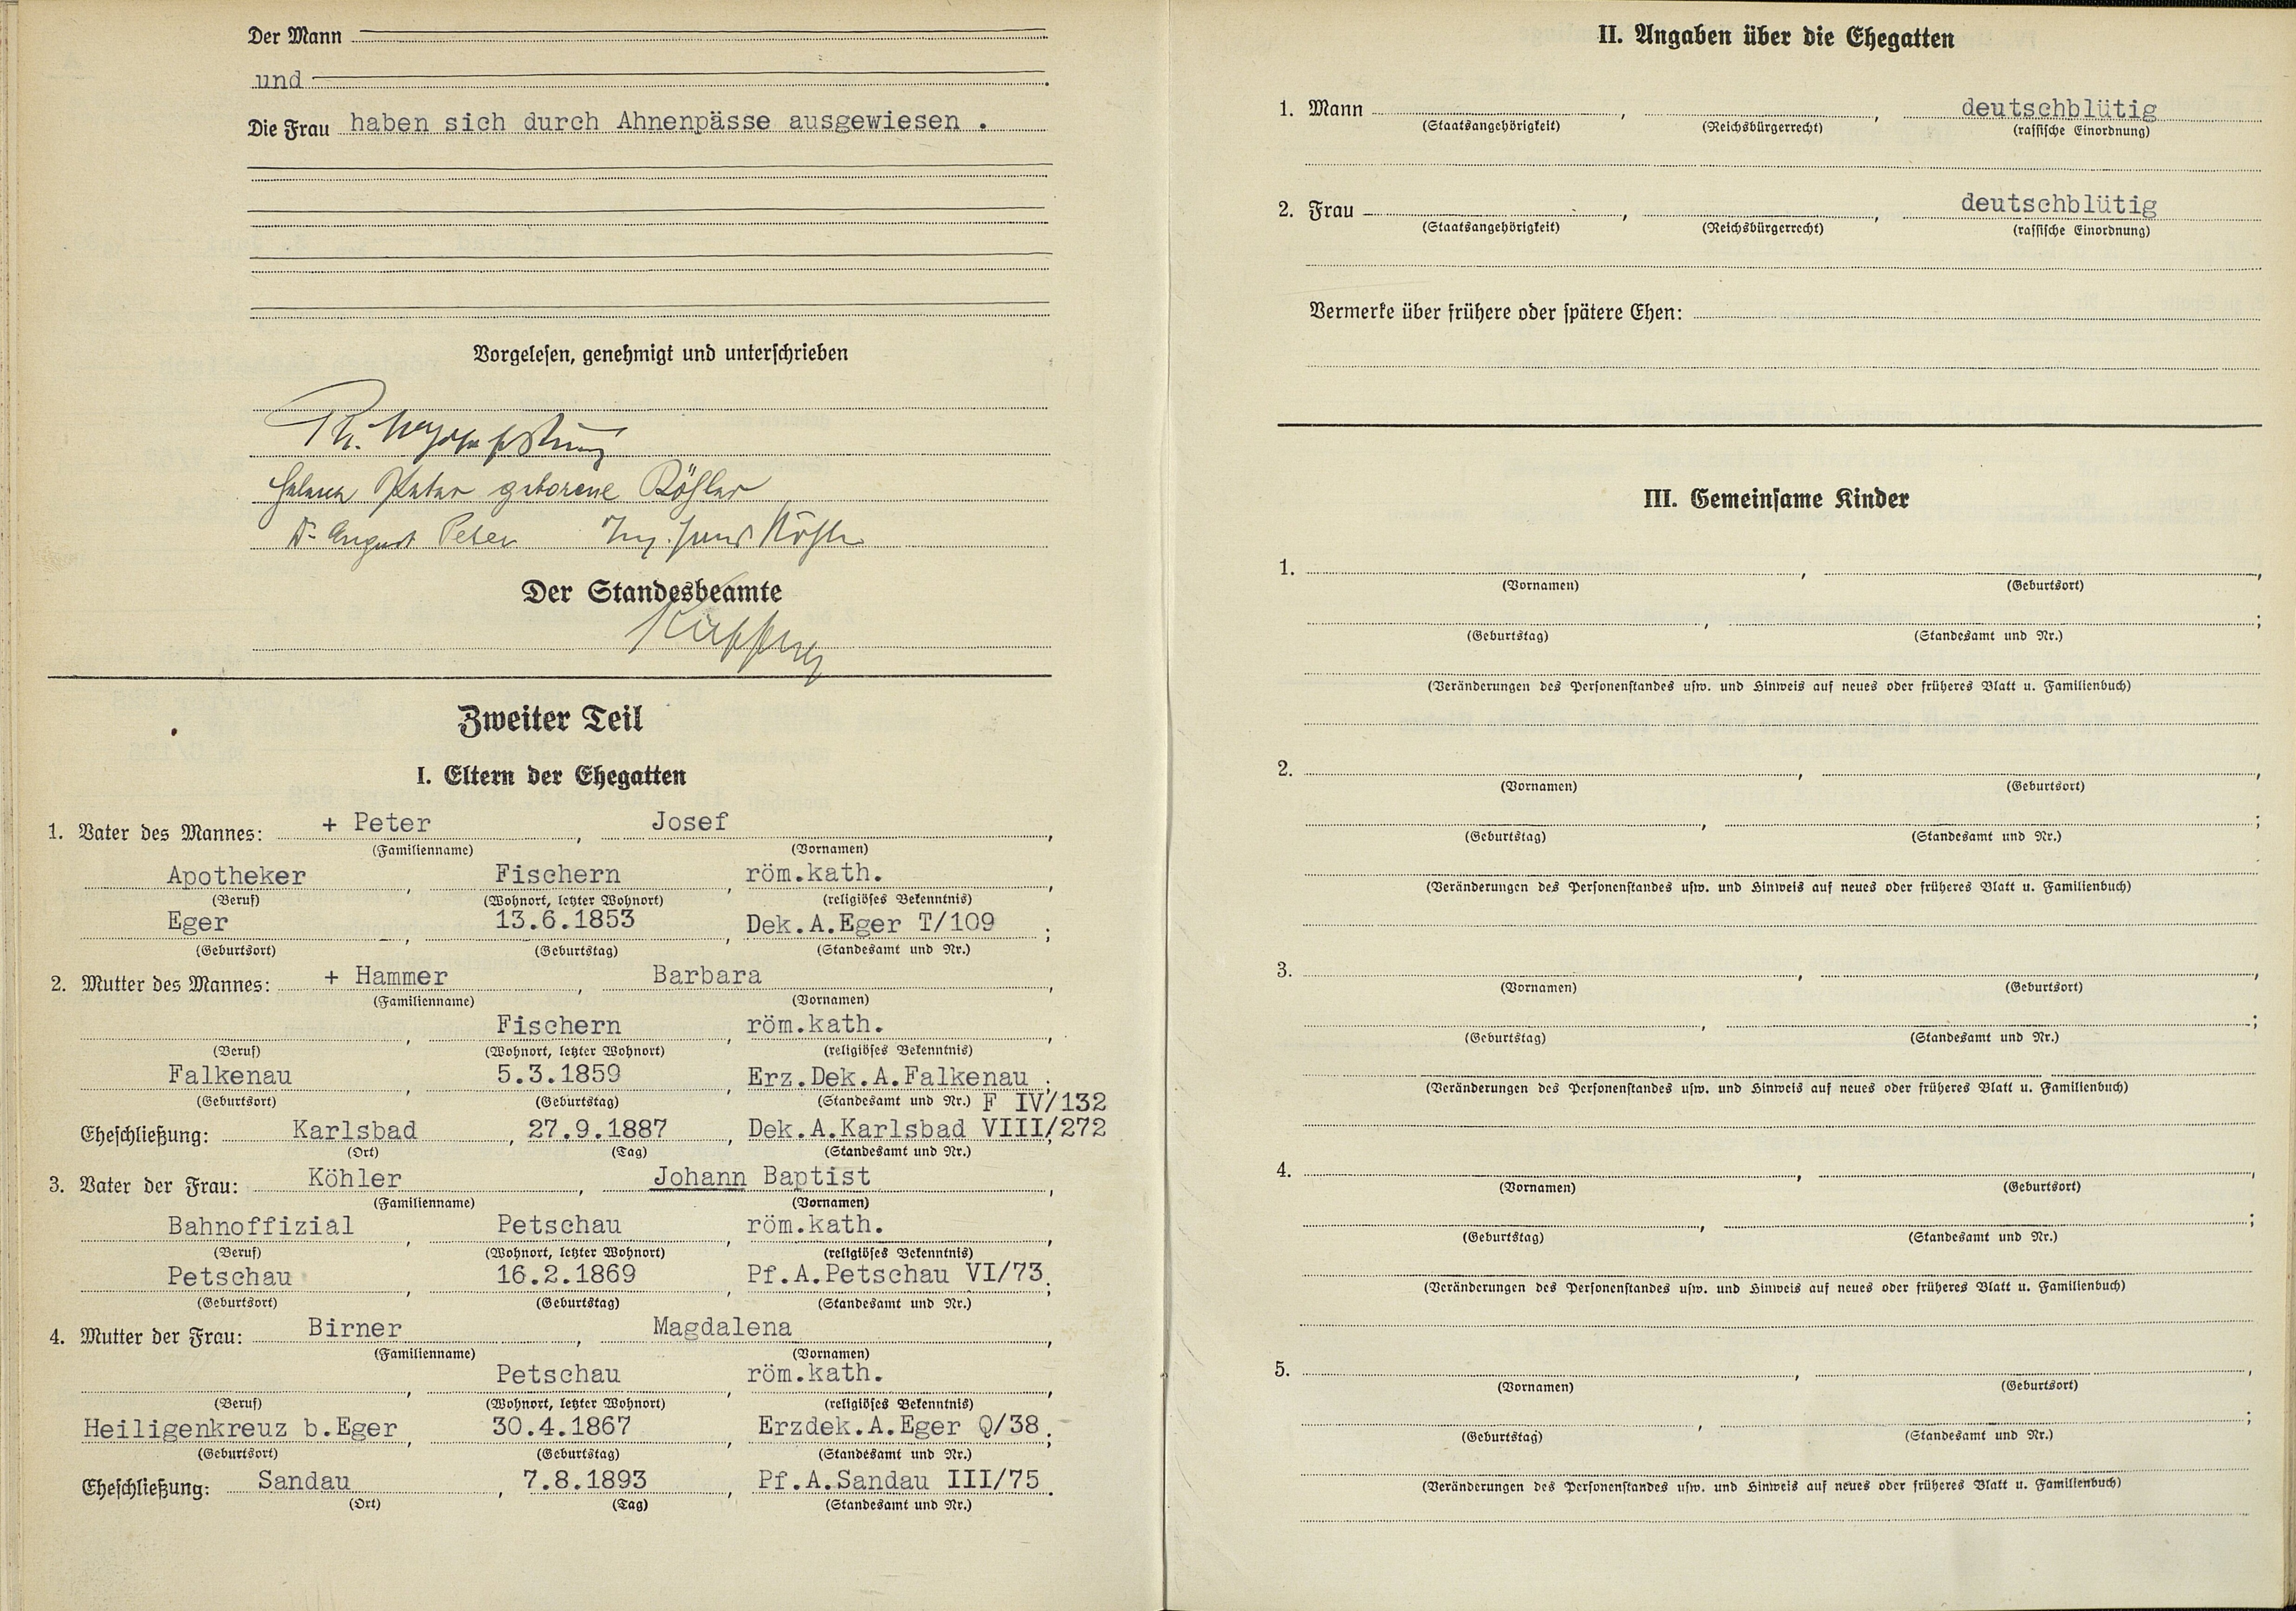 Der Mann
und
Die Frau haben sich durch Ahnenpässe ausgewiesen .
Vorgelesen, genehmigt und unterschrieben
Helene Peter geborene Köhler
Dr August Peter Ing. Köhler
Der Standesbeamte
Zweiter Teil
I. Eltern der Ehegatten
1. Vater des Mannes: + Peter , Josef ,
(Familienname) (Vornamen)
Apotheker , Fischern , röm.kath. ,
(Beruf) (Wohnort, letzter Wohnort) (religiöses Bekenntnis)
Eger , 13.6.1853 , Dek.A.Eger T/109 ;
(Geburtsort) (Geburtstag) (Standesamt und Nr.)
2. Mutter des Mannes: + Hammer , Barbara ,
(Familienname) (Vornamen)
, Fischern , röm.kath. ,
(Beruf) (Wohnort, letzter Wohnort) (religiöses Bekenntnis)
Falkenau , 5.3.1859 , Erz.Dek.A.Falkenau ;
(Geburtsort) (Geburtstag) (Standesamt und Nr.) F IV/132
Eheschließung: Karlsbad , 27.9.1887 , Dek.A.Karlsbad VIII/272 ;
(Ort) (Tag) (Standesamt und Nr.)
3. Vater der Frau: Köhler , Johann Baptist ,
(Familienname) (Vornamen)
Bahnoffizial , Petschau , röm.kath. ,
(Beruf) (Wohnort, letzter Wohnort) (religiöses Bekenntnis)
Petschau , 16.2.1869 , Pf.A.Petschau VI/73 ;
(Geburtsort) (Geburtstag) (Standesamt und Nr.)
4. Mutter der Frau: Birner , Magdalena ,
(Familienname) (Vornamen)
, Petschau , röm.kath. ,
(Beruf) (Wohnort, letzter Wohnort) (religiöses Bekenntnis)
Heiligenkreuz b.Eger , 30.4.1867 , Erzdek.A.Eger Q/38 ;
(Geburtsort) (Geburtstag) (Standesamt und Nr.)
Eheschließung: Sandau , 7.8.1893 , Pf.A.Sandau III/75 .
(Ort) (Tag) (Standesamt und Nr.)
II. Angaben über die Ehegatten
1. Mann , , deutschblütig
(Staatsangehörigkeit) (Reichsbürgerrecht) (rassische Einordnung)
2. Frau , , deutschblütig
(Staatsangehörigkeit) (Reichsbürgerrecht) (rassische Einordnung)
Vermerke über frühere oder spätere Ehen:
III. Gemeinsame Kinder
1. , ,
(Vornamen) (Geburtsort)
, ;
(Geburtstag) (Standesamt und Nr.)
(Veränderungen des Personenstandes usw. und Hinweis auf neues oder früheres Blatt u. Familienbuch)
2. , ,
(Vornamen) (Geburtsort)
, ;
(Geburtstag) (Standesamt und Nr.)
(Veränderungen des Personenstandes usw. und Hinweis auf neues oder früheres Blatt u. Familienbuch)
3. , ,
(Vornamen) (Geburtsort)
, ;
(Geburtstag) (Standesamt und Nr.)
(Veränderungen des Personenstandes usw. und Hinweis auf neues oder früheres Blatt u. Familienbuch)
4. , ,
(Vornamen) (Geburtsort)
, ;
(Geburtstag) (Standesamt und Nr.)
(Veränderungen des Personenstandes usw. und Hinweis auf neues oder früheres Blatt u. Familienbuch)
5. , ,
(Vornamen) (Geburtsort)
, ;
(Geburtstag) (Standesamt und Nr.)
(Veränderungen des Personenstandes usw. und Hinweis auf neues oder früheres Blatt u. Familienbuch)